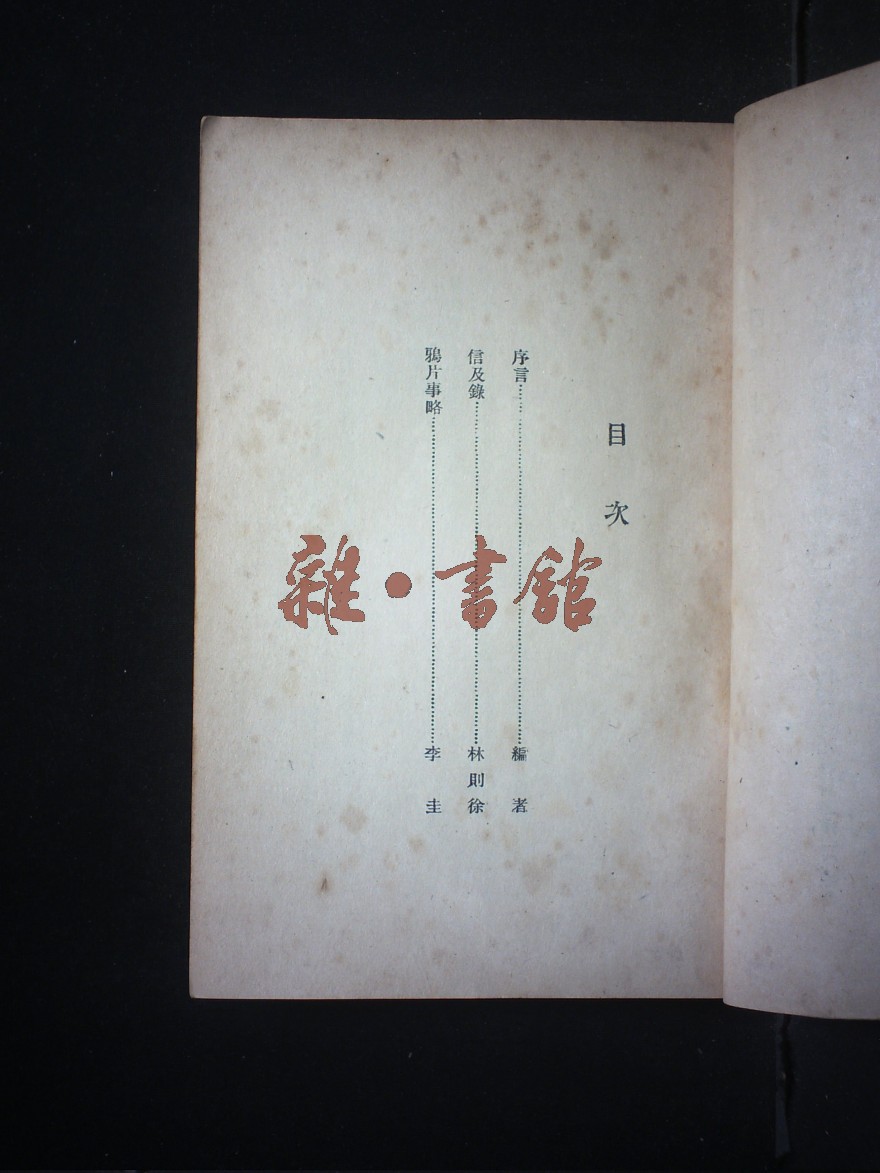 目次
序言……編者
信及錄……林則徐
鴉片事略……李圭
雜·書館